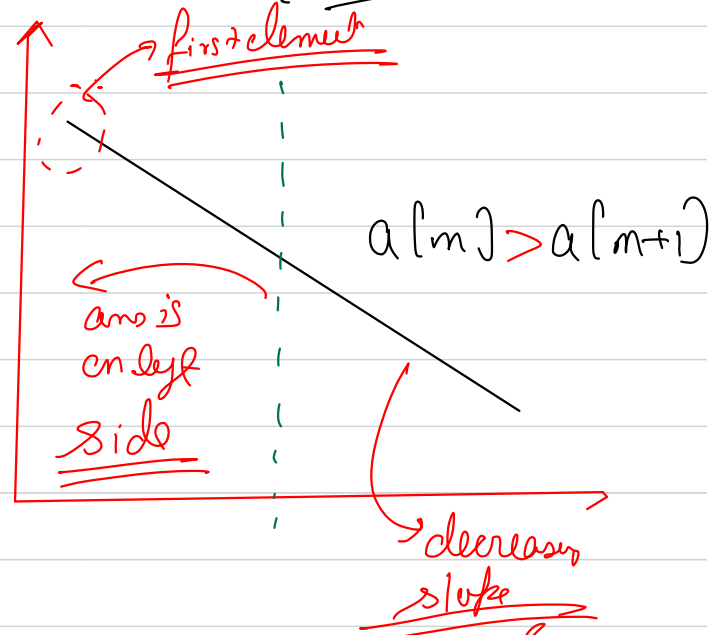 first element
a[m] > a[m+1]
ans is
on left
side
decreasing
slope